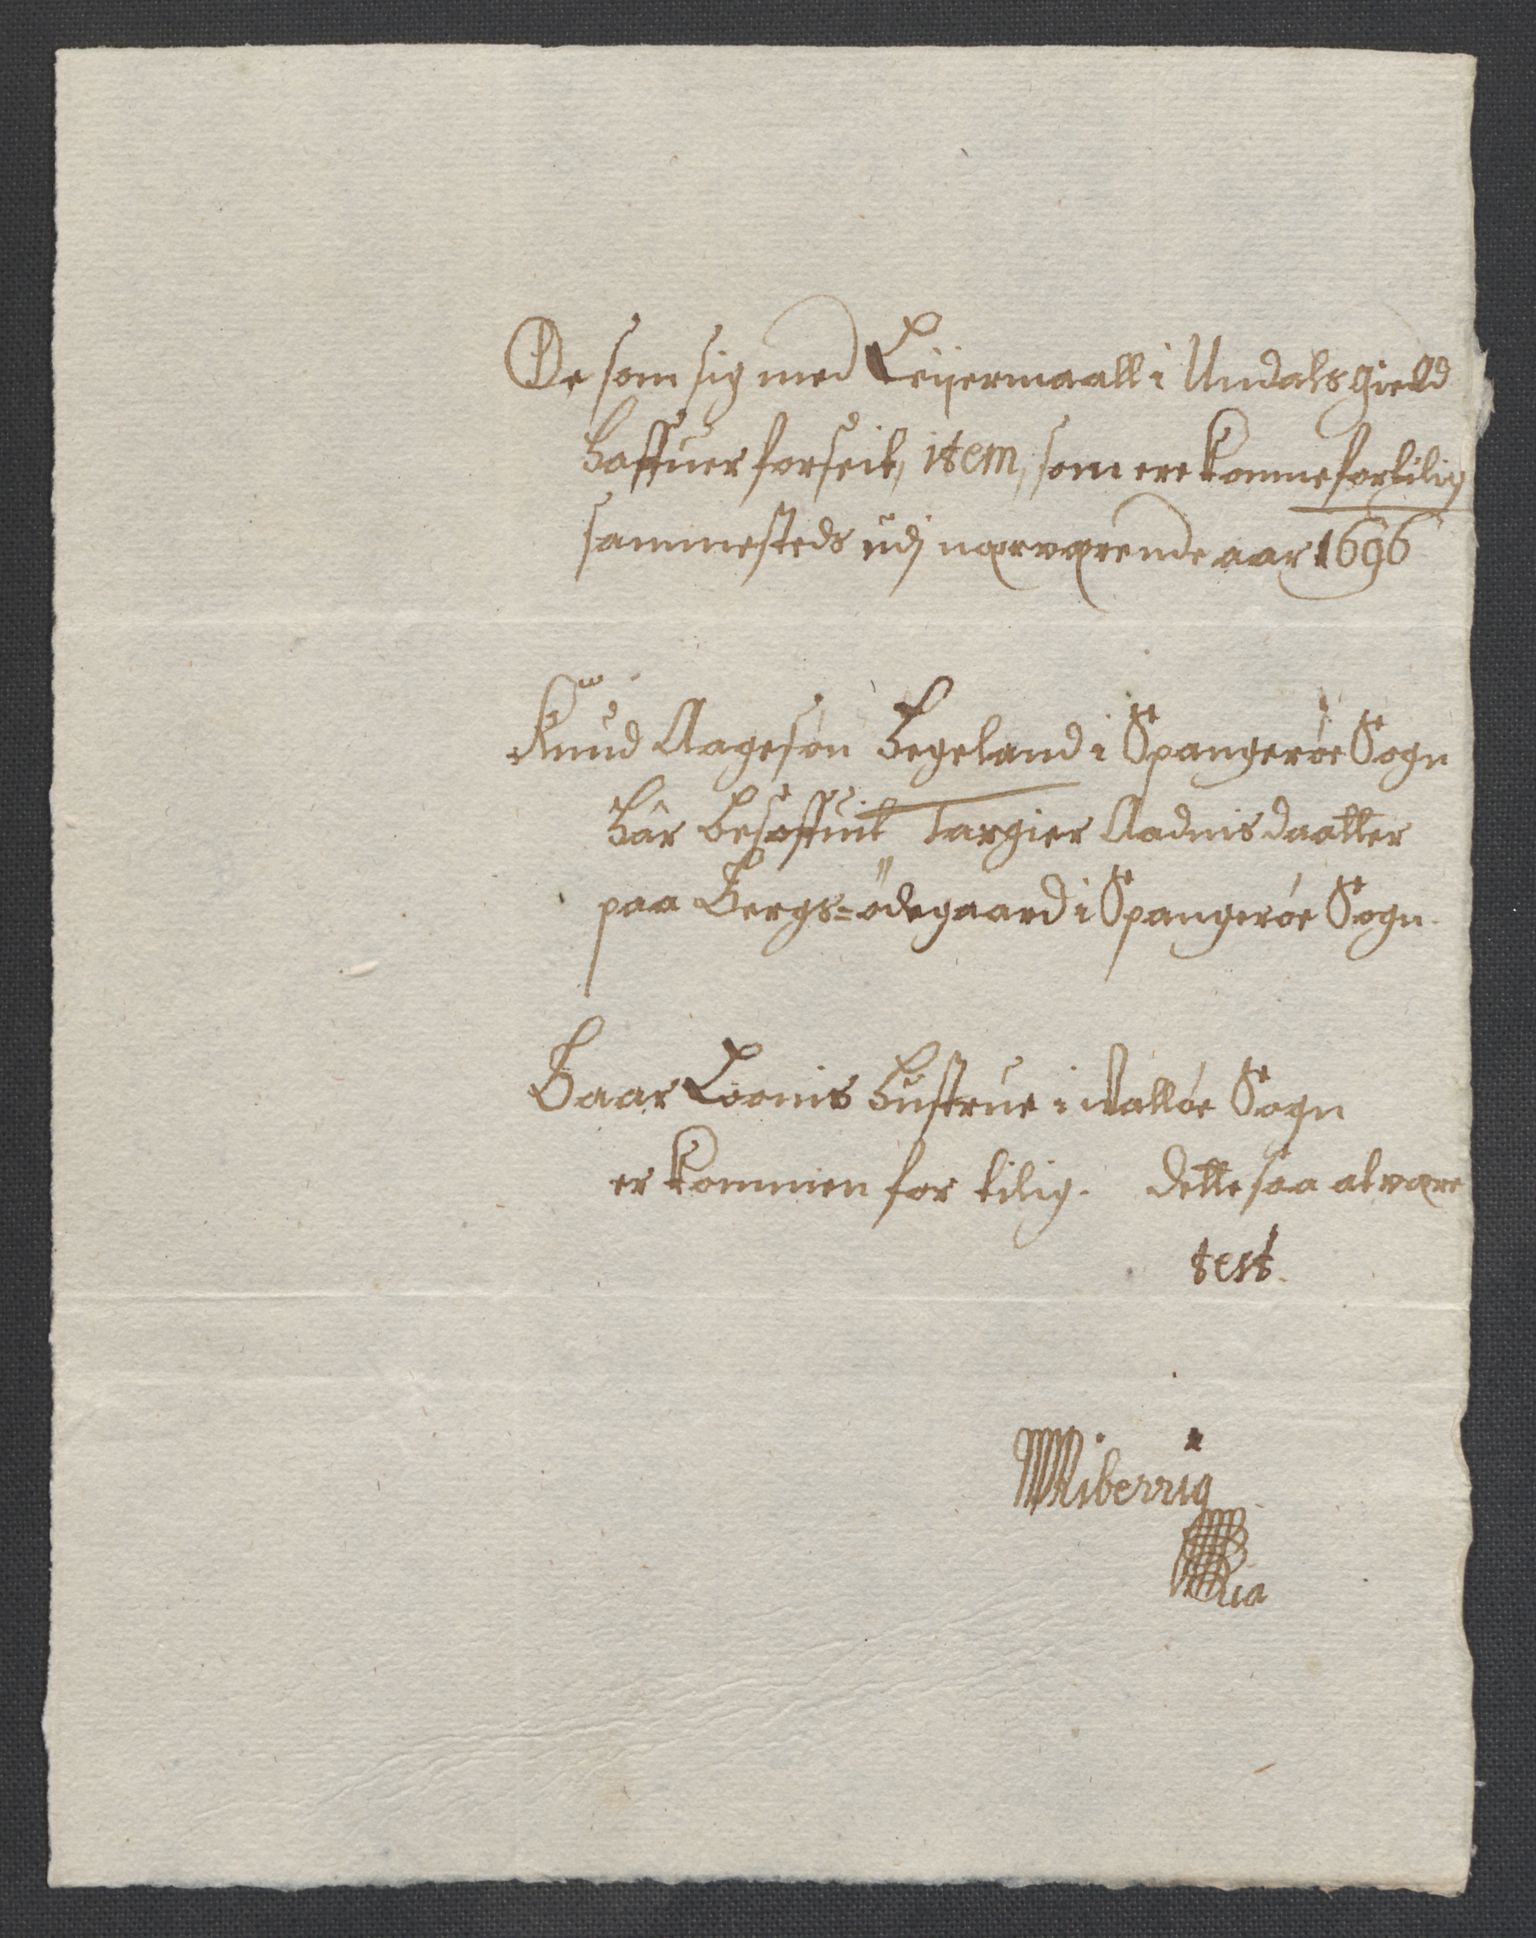 De som sig med Leijermaall i Undals gield
haffuer forseet, item, som ere komne fortilig
sammesteds udj nærværende aar 1696
Knud Aageson Hegeland i Spangerøe Sogn
hâr besoffuit Targier Aadnisdaatter
paa Bergs=ødegaard i Spangerøe Sogn.
Baar hustrue i Valløe Sogn
er kommen for tilig. Dette saa at være
test.
Riberrig